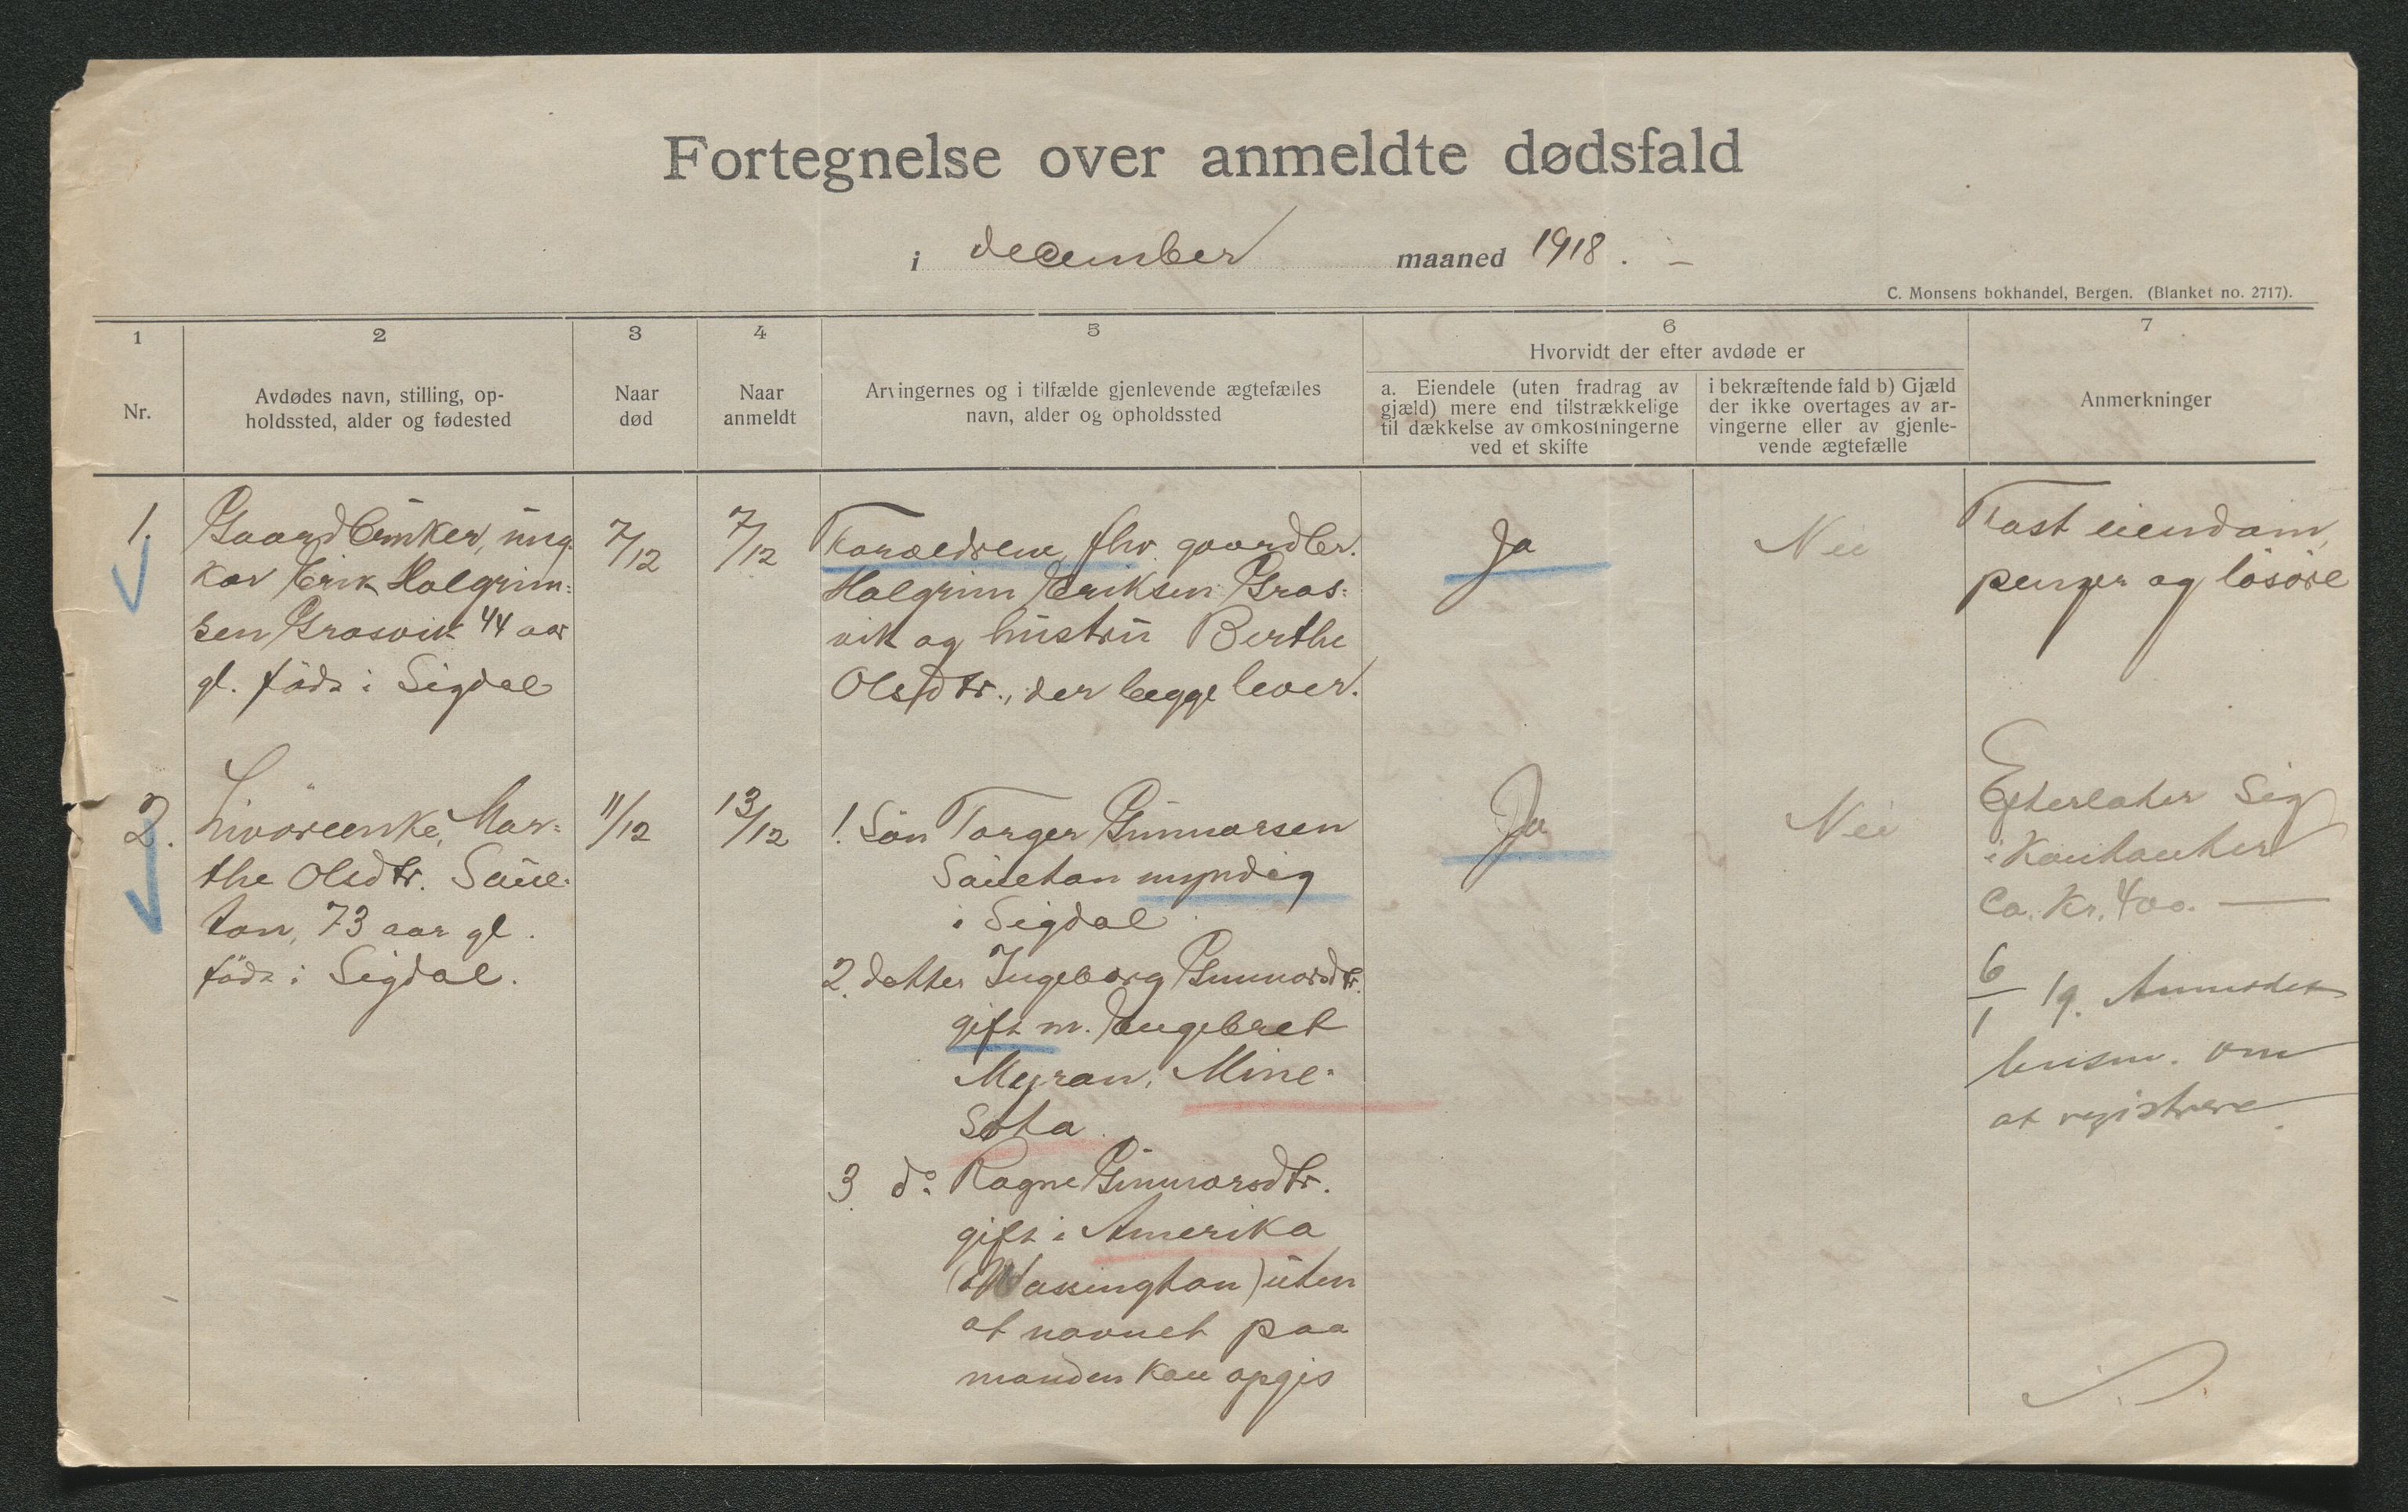 Fortegnelse over anmeldte dødsfald
i december maaned 1918. –
C. Monsens bokhandel, Bergen. (Blanket no. 2717).
1
2
3
4
5
6
7
Nr.
Avdødes navn, stilling, op-
holdssted, alder og fødested
Naar
død
Naar
anmeldt
Arvingernes og i tilfælde gjenlevende ægtefælles
navn, alder og opholdssted
Hvorvidt der efter avdøde er
a. Eiendele (uten fradrag av
gjæld) mere end tilstrækkelige
til dækkelse av omkostningerne
ved et skifte
i bekræftende fald b) Gjæld
der ikke overtages av ar-
vingerne eller av gjenle-
vende ægtefælle
Anmerkninger
1.
Gaardbruker, ung-
kar Erik Halgrim-
sen Grasvik 44 aar
gl. föds i Sigdal
7/12
7/12
Foræedrene, fhv. gaardbr.
Halgrim Eriksen Gras-
vik og hustru Berthe
Olsdtr., der begge lever.
Ja
Nei
Fast eiendom,
penger og lösöre
2.
Livöreenke, Mar-
the Olsdtr. Saue-
ton, 73 aar gl.
föds i Sigdal.
11/12
13/12
1. Sön Torger Gunnarsen
Saueton myndig
i Sigdal
2. datter Ingeborg Gunnarsdtr.
gift m. Engebret
Myran, Mine-
sota
3. do. Ragne Gunnarsdtr.
gift i Amerika
(Wassington) uten
at navnet paa
manden kan opgis
Ja
Nei
Efterlater sig
i kontanter
ca. kr. 400. —
6/1 19. Anmodet
lensm. om
at registrere.